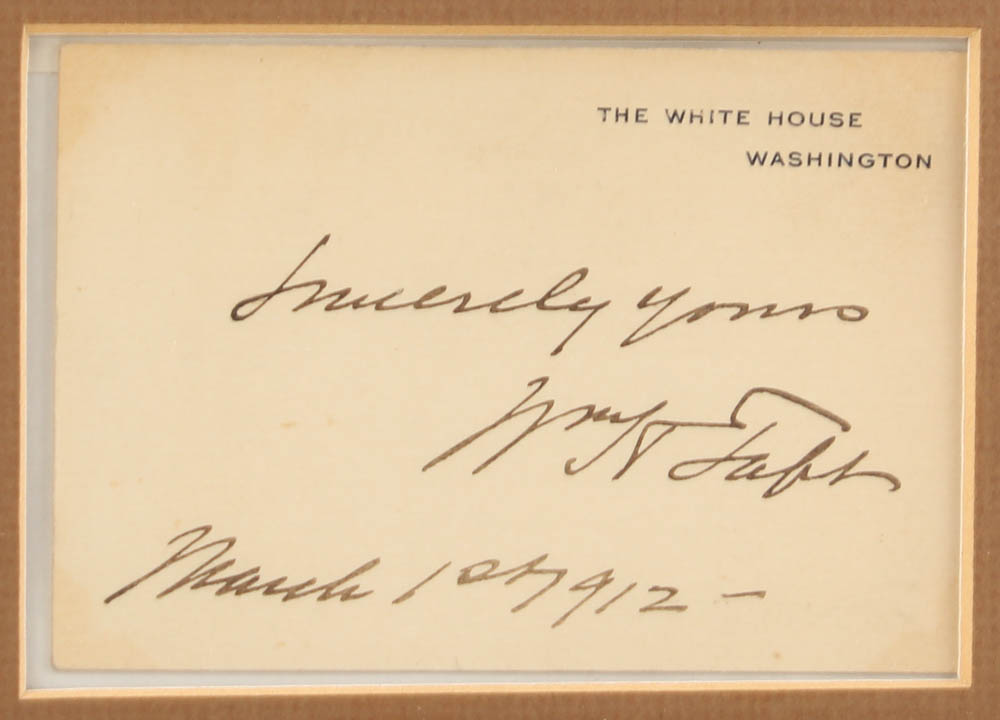 THE WHITE HOUSE
WASHINGTON
Sincerely yours
Wm H Taft
March 1st 1912 -